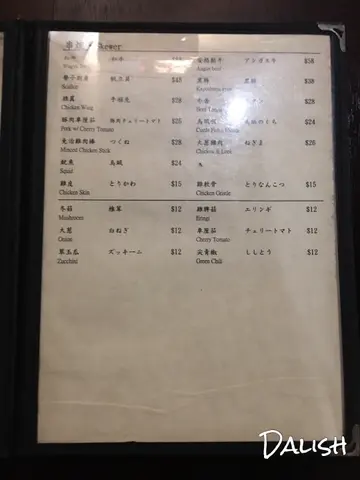 串燒 Skewer
和牛 和牛
Wagyu Beef
安格斯牛 アンガス牛 $58
Angus beef
帶子 $48
Scallop
黑豚 黑豚 $38
Kagoshima pork
雞翼 手羽先 $28
Chicken Wing
牛舌 タン $28
Beef Tongue
豚肉車厘茄 豚肉チェリートマト $28
Pork w/ Cherry Tomato
$24
免治雞肉棒 つくね $28
Minced Chicken Stick
大蔥雞肉 ねぎま $26
Chicken & Leek
魷魚 烏賊 $24
Squid
雞皮 とりかわ $15
Chicken Skin
雞軟骨 とりなんこつ $15
Chicken Gristle
冬菇 椎茸 $12
Mushroom
雞髀菇 エリンギ $12
Eringi
大蔥 白ねぎ $12
Onion
車厘茄 チェリートマト $12
Cherry Tomato
翠玉瓜 ズッキーニ $12
Zucchini
尖青椒 ししとう $12
Green Chili
DALISH